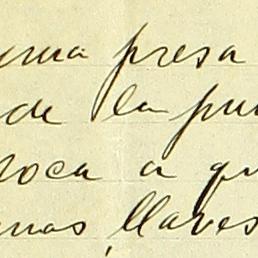 una presa
de la pu
oca a qu
unas llaves